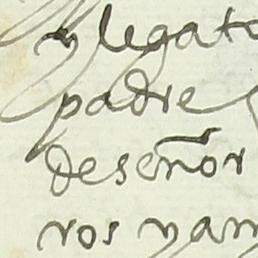 y legato
padre
de señor
ros yam